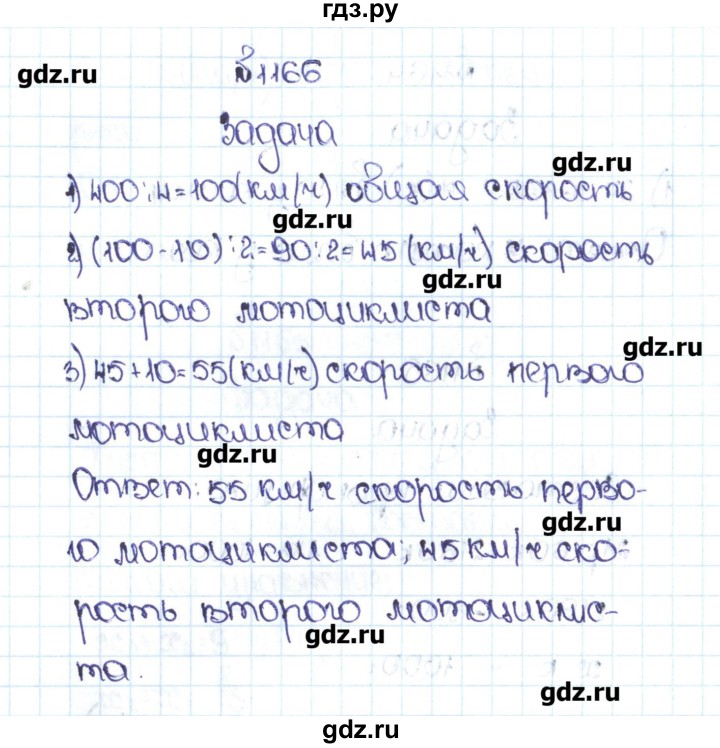 гдз.ру
gdz.ru
№1166
Задача
gdz.ru
1) 400:4=100(км/ч) общая скорость
gdz.ru
2) (100-10):2=90:2=45 (км/ч) скорость
gdz.ru
второго мотоциклиста
gdz.ru
3) 45+10=55(км/ч) скорость первого
мотоциклиста
gdz.ru
Ответ: 55 км/ч скорость перво-
gdz.ru
го мотоциклиста; 45 км/ч ско-
рость второго мотоциклис-
gdz.ru
та.
gdz.ru
gdz.ru